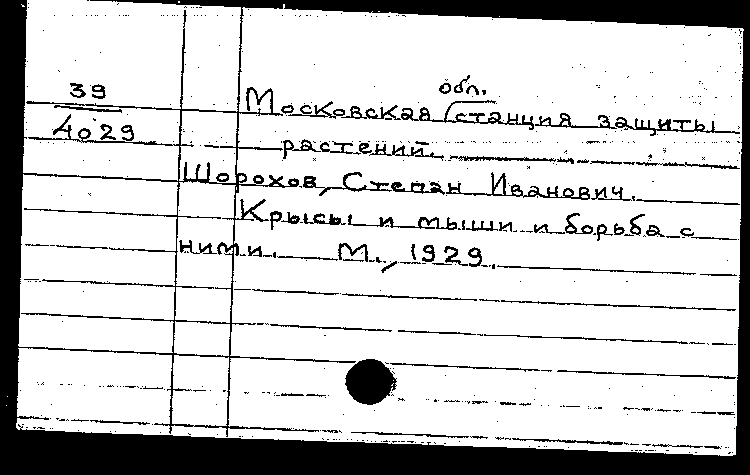 обл.
39 Московская станция защиты
4029 растений.
Шорохов, Степан Иванович.
Крысы и мыши и борьба с
ними. М., 1929.